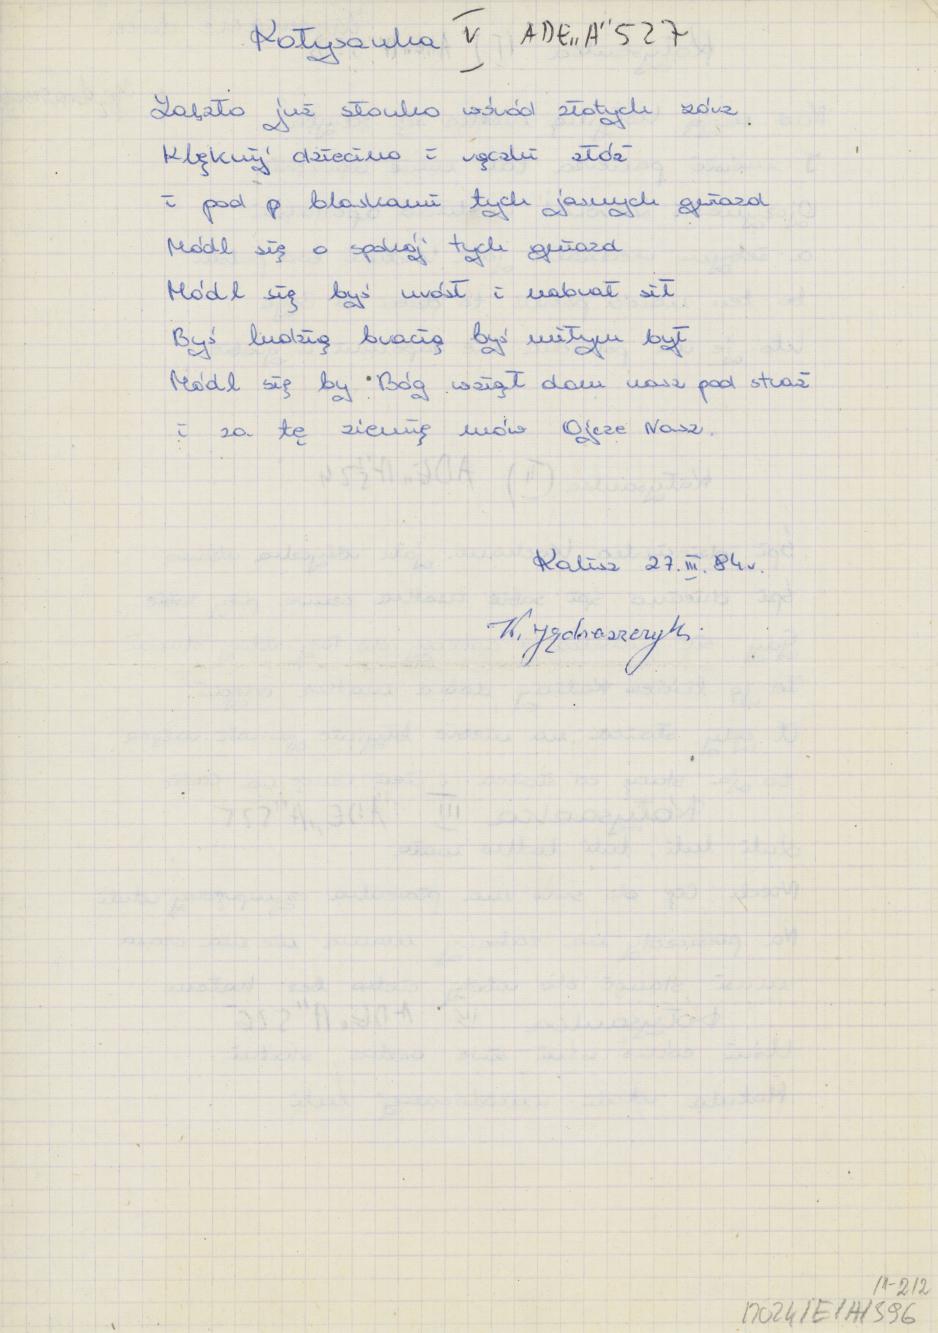 Kołysanka V ADE„A"527
Zaszło już słonko wśród złotych zórz
Klęknij dziecino i rączki złóż
i pod p blaskami tych jasnych gwiazd
Módl się o spokój tych gwiazd
Módl się byś urósł i nabrał sił
Byś ludzią bracią byś miłym był
Módl się by Bóg wziął dom nasz pod straż
i za tę ziemię mów Ojcze Nasz.
Kalisz 27.III.84r.
K. Jędraszczyk
/1-2/2
17024/E/A/396